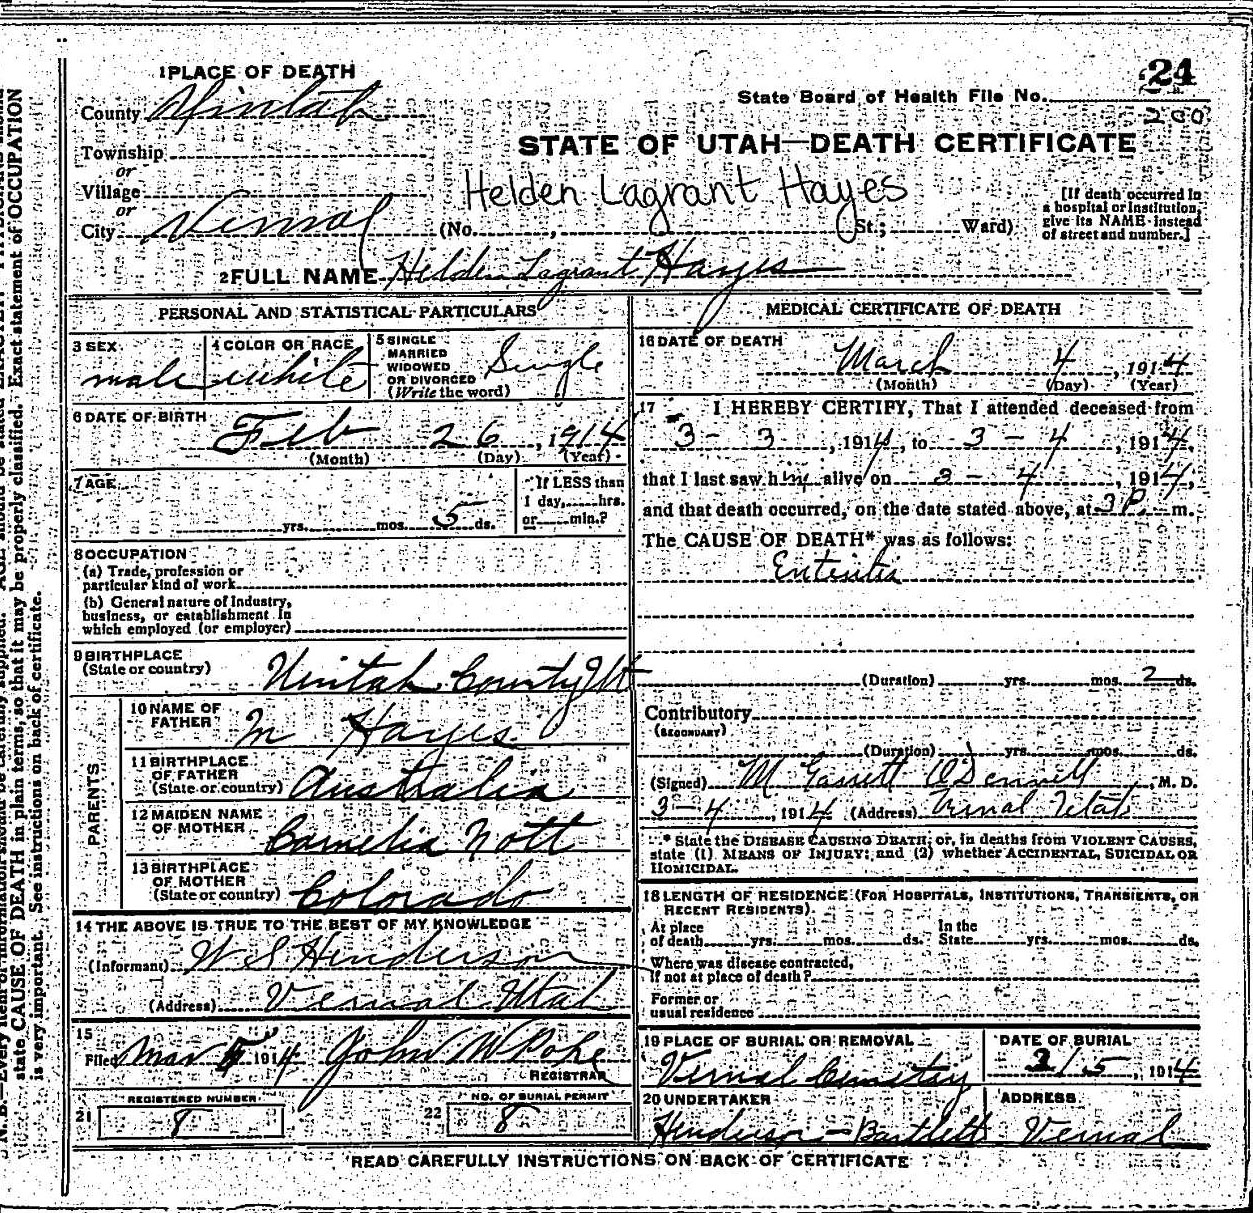 1 PLACE OF DEATH
24
County Uintah
State Board of Health File No.
200
Township
STATE OF UTAH—DEATH CERTIFICATE
or
Village
Helden Lagrant Hayes
or
City Vernal (No. , St.; Ward)
[If death occurred in
a hospital or institution,
give its NAME instead
of street and number.]
2 FULL NAME Helden Lagrant Hayes
PERSONAL AND STATISTICAL PARTICULARS
3 SEX
male
4 COLOR OR RACE
white
5 SINGLE
MARRIED
WIDOWED
OR DIVORCED
(Write the word)
Single
6 DATE OF BIRTH
Feb 26, 1914
(Month) (Day) (Year)
7 AGE
yrs. mos. 5 ds.
If LESS than
1 day, hrs.
or min.?
8 OCCUPATION
(a) Trade, profession or
particular kind of work
(b) General nature of Industry,
business, or establishment in
which employed (or employer)
9 BIRTHPLACE
(State or country) Uintah County Ut
PARENTS
10 NAME OF
FATHER M Hayes
11 BIRTHPLACE
OF FATHER
(State or country) Australia
12 MAIDEN NAME
OF MOTHER Cornelia Nott
13 BIRTHPLACE
OF MOTHER
(State or country) Colorado
14 THE ABOVE IS TRUE TO THE BEST OF MY KNOWLEDGE
(Informant) W S Henderson
(Address) Vernal Utah
15
Filed Mar 5 1914 John W Pope
REGISTRAR
REGISTERED NUMBER
21 8
NO. OF BURIAL PERMIT
22 8
MEDICAL CERTIFICATE OF DEATH
16 DATE OF DEATH
March 4, 1914
(Month) (Day) (Year)
17 I HEREBY CERTIFY, That I attended deceased from
3-3, 1914, to 3-4, 1914,
that I last saw him alive on 3-4, 1914,
and that death occurred, on the date stated above, at 3 P. m.
The CAUSE OF DEATH* was as follows:
Enteritis
(Duration) yrs. mos. 2 ds.
Contributory
(SECONDARY)
(Duration) yrs. mos. ds.
(Signed) M Garrett O'Donnell, M. D.
3-4, 1914 (Address) Vernal Utah
* State the DISEASE CAUSING DEATH; or, in deaths from VIOLENT CAUSES,
state (1) MEANS OF INJURY; and (2) whether ACCIDENTAL, SUICIDAL OR
HOMICIDAL.
18 LENGTH OF RESIDENCE (FOR HOSPITALS, INSTITUTIONS, TRANSIENTS, OR
RECENT RESIDENTS).
At place
of death yrs. mos. ds.
In the
State yrs. mos. ds.
Where was disease contracted,
if not at place of death?
Former or
usual residence
19 PLACE OF BURIAL OR REMOVAL
Vernal Cemetery
DATE OF BURIAL
3/5, 1914
20 UNDERTAKER
Henderson-Bartlett
ADDRESS
Vernal
READ CAREFULLY INSTRUCTIONS ON BACK OF CERTIFICATE
state CAUSE OF DEATH in plain terms, so that it may be properly classified. Exact statement of OCCUPATION
is very important. See instructions on back of certificate.